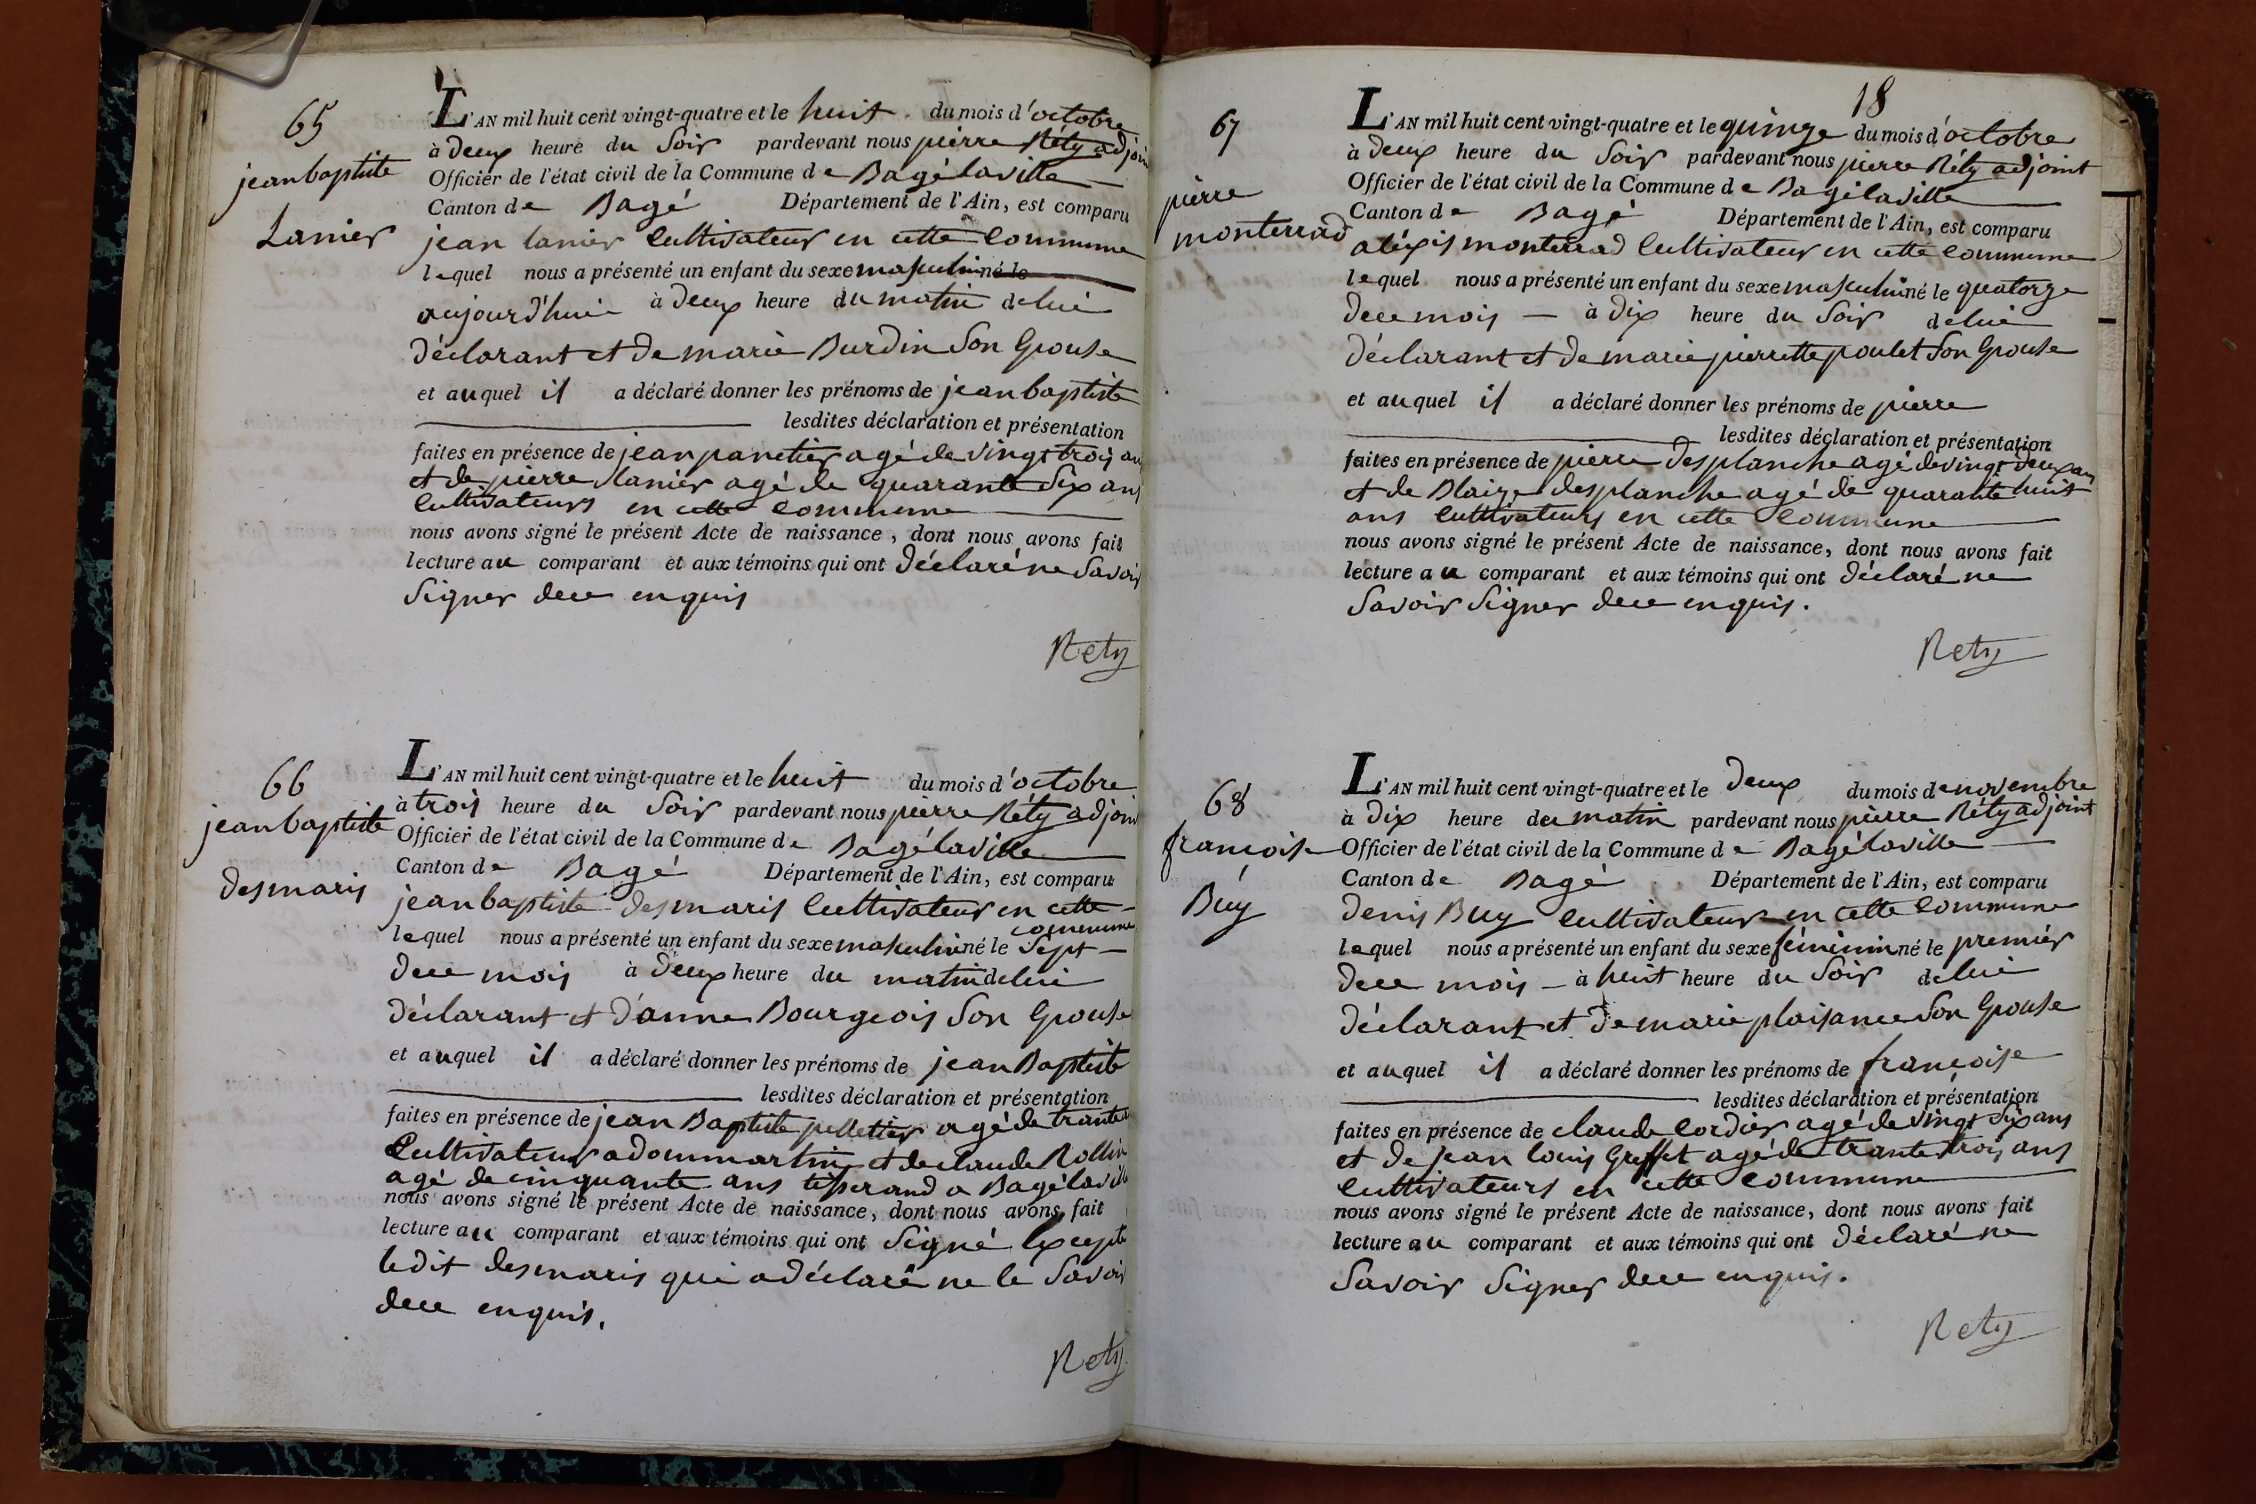 65
jean baptiste
Lanier
L'AN mil huit cent vingt-quatre et le huit du mois d'octobre
à deux heure du Soir pardevant nous pierre Réty adjoin
Officier de l'état civil de la Commune de Bagélaville
Canton de Bagé Département de l'Ain, est comparu
jean lanier Cultivateur en cette Commune
lequel nous a présenté un enfant du sexe masculin né le
aujourd'hui à deux heure du matin de lui
déclarant et de marie Burdin Son Epouse
et auquel il a déclaré donner les prénoms de jean baptiste
lesdites déclaration et présentation
faites en présence de jean panetier agé de vingt trois an
et de pierre lanier agé de quarante Six ans
Cultivateurs en cette commune
nous avons signé le présent Acte de naissance, dont nous avons fait
lecture au comparant et aux témoins qui ont déclaré ne Savoir
Signer dece enquis
Rety
66
jean baptiste
desmaris
L'AN mil huit cent vingt-quatre et le huit du mois d'octobre
à trois heure du Soir pardevant nous pierre Réty adjoin
Officier de l'état civil de la Commune de Bagélaville
Canton de Bagé Département de l'Ain, est comparu
jean baptiste desmaris Cultivateur en cette
commune
lequel nous a présenté un enfant du sexe masculin né le Sept
dece mois à deux heure du matin de lui
déclarant et d'anne Bourgeois Son Epouse
et auquel il a déclaré donner les prénoms de jean Baptiste
lesdites déclaration et présentation
faites en présence de jean Baptiste pelletier agé de trante
Cultivateur a dommartin et de claude Rollin
agé de cinquante ans tisserand a Bagélaville
nous avons signé le présent Acte de naissance, dont nous avons fait
lecture au comparant et aux témoins qui ont Signé Excepté
ledit desmaris qui a déclaré ne le Savoir
dece enquis.
Rety
18
67
pierre
monterrad
L'AN mil huit cent vingt-quatre et le quinze du mois d'octobre
à deux heure du Soir pardevant nous pierre Réty adjoint
Officier de l'état civil de la Commune de Bagélaville
Canton de Bagé Département de l'Ain, est comparu
aléxis monterrad Cultivateur en cette commune
lequel nous a présenté un enfant du sexe masculin né le quatorze
dece mois à dix heure du Soir de lui
déclarant et de marie pierrette poulet Son Epouse
et auquel il a déclaré donner les prénoms de pierre
lesdites déclaration et présentation
faites en présence de pierre desplanche agé de vingt deux an
et de Blaize desplanche agé de quarante huit
ans Cultivateurs en cette Commune
nous avons signé le présent Acte de naissance, dont nous avons fait
lecture au comparant et aux témoins qui ont déclaré ne
Savoir Signer dece enquis.
Rety
68
françoise
Buy
L'AN mil huit cent vingt-quatre et le deux du mois de novembre
à dix heure du matin pardevant nous pierre Réty adjoint
Officier de l'état civil de la Commune de Bagélaville
Canton de Bagé Département de l'Ain, est comparu
denis Buy Cultivateur en cette Commune
lequel nous a présenté un enfant du sexe féminin né le premier
dece mois à huit heure du Soir de lui
déclarant et de marie plaisance Son Epouse
et auquel il a déclaré donner les prénoms de françoise
lesdites déclaration et présentation
faites en présence de claude Cordier agé de vingt Six ans
et de jean louis Greffet agé de trante trois ans
Cultivateurs en cette Commune
nous avons signé le présent Acte de naissance, dont nous avons fait
lecture au comparant et aux témoins qui ont déclaré ne
Savoir Signer dece enquis.
Rety